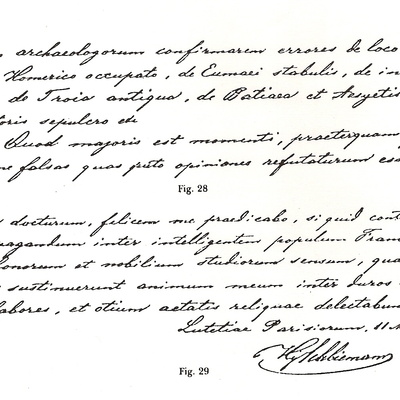 archaeologorum confirmarem errores de loco
Homerico occupato, de Eumaei stabulis, de
de Troia antiqua, de Batiaea et Aesyetis
sepulcro etc
Quod majoris est momenti, praeterquam
falsas quas puto opiniones refutaturum
Fig. 28
docturum, felicem me praedicabo, si quid
inter intelligentem populum
honorum et nobilium studiorum sensum,
sustinuerunt animum meum inter duros
labores, et otium aetatis reliquae
Lutetiae Parisiorum, 11
HySchliemann
Fig. 29